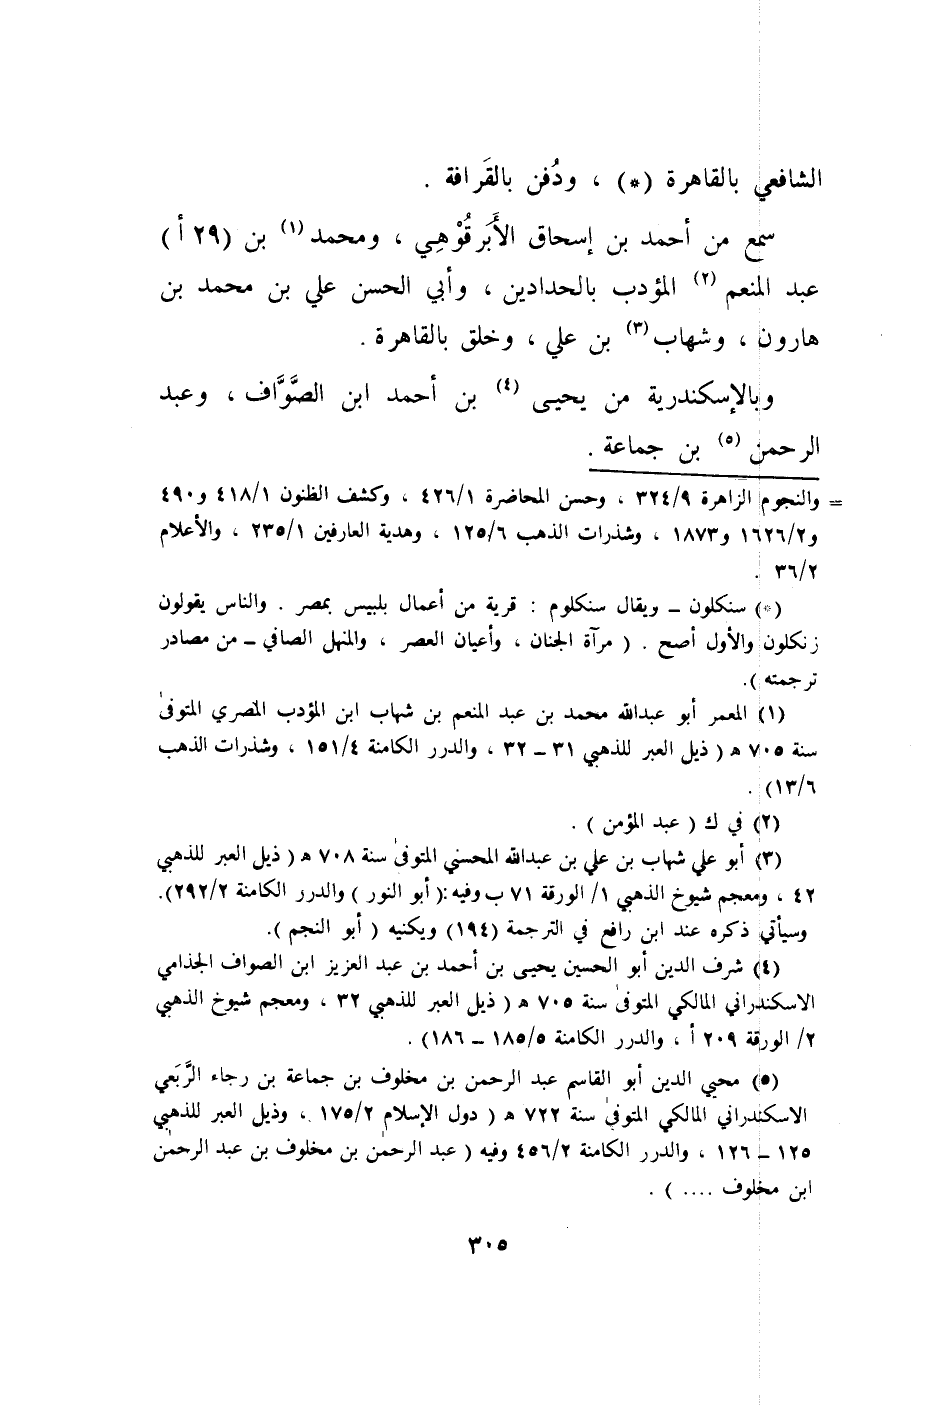 الشافعي بالقاهرة (*) ، ودُفن بالقَرافة .
سمع من أحمد بن إسحاق الأَبَرقُوْهِي ، ومحمد (١) بن (٢٩ أ)
عبد المنعم (٢) المؤدب بالحدادين ، وأبي الحسن علي بن محمد بن
هارون ، وشهاب (٣) بن علي ، وخلق بالقاهرة .
وبالإسكندرية من يحيى (٤) بن أحمد ابن الصَّوَّاف ، وعبد
الرحمن (٥) بن جماعة .
= والنجوم الزاهرة ٣٢٤/٩ ، وحسن المحاضرة ٤٢٦/١ ، وكشف الظنون ٤١٨/١ و٤٩٠
و١٦٢٦/٢ و١٨٧٣ ، وشذرات الذهب ١٢٥/٦ ، وهدية العارفين ٢٣٥/١ ، والأعلام
٣٦/٢ .
(*) سنكلون ــ ويقال سنكلوم : قرية من أعمال بلبيس بمصر . والناس يقولون
زنكلون والأول أصح . ( مرآة الجنان ، وأعيان العصر ، والمنهل الصافي ــ من مصادر
ترجمته ).
(١) المعمر أبو عبدالله محمد بن عبد المنعم بن شهاب ابن المؤدب المصري المتوفىٰ
سنة ٧٠٥ ه ( ذيل العبر للذهبي ٣١ ــ ٣٢ ، والدرر الكامنة ١٥١/٤ ، وشذرات الذهب
١٣/٦) .
(٢) في ك ( عبد المؤمن ) .
(٣) أبو علي شهاب بن علي بن عبدالله المحسني المتوفىٰ سنة ٧٠٨ ه ( ذيل العبر للذهبي
٤٢ ، ومعجم شيوخ الذهبي ١/ الورقة ٧١ ب وفيه :( أبو النور ) والدرر الكامنة ٢٩٢/٢).
وسيأتي ذكره عند ابن رافع في الترجمة (١٩٤) ويكنيه ( أبو النجم ).
(٤) شرف الدين أبو الحسين يحيى بن أحمد بن عبد العزيز ابن الصواف الجذامي
الاسكندراني المالكي المتوفىٰ سنة ٧٠٥ ه ( ذيل العبر للذهبي ٣٢ ، ومعجم شيوخ الذهبي
٢/ الورقة ٢٠٩ أ ، والدرر الكامنة ١٨٥/٥ ــ ١٨٦) .
(٥) محيي الدين أبو القاسم عبد الرحمن بن مخلوف بن جماعة بن رجاء الرَّبَعي
الاسكندراني المالكي المتوفىٰ سنة ٧٢٢ ه ( دول الإسلام ١٧٥/٢ ، وذيل العبر للذهبي
١٢٥ ــ ١٢٦ ، والدرر الكامنة ٤٥٦/٢ وفيه ( عبد الرحمٰن بن مخلوف بن عبد الرحمٰن
ابن مخلوف .... ) .
٣٠٥